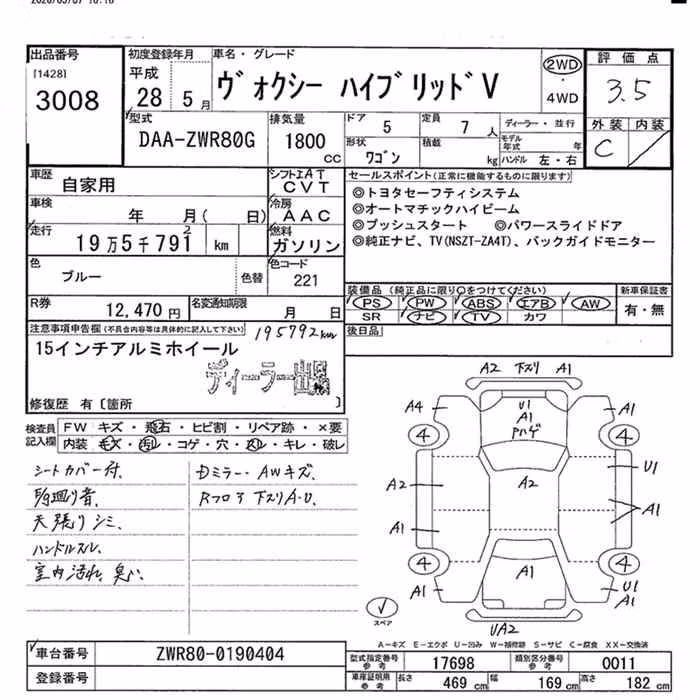 出品番号
[1428]
3008
初度登録年月
平成
28 5 月
車名・グレード
ヴォクシー ハイブリッドV
2WD
・
4WD
評価点
3.5
外装 内装
C
型式
DAA-ZWR80G
排気量
1800 cc
ドア 5
定員 7 人
形状 ワゴン
積載 kg
ディーラー・並行
モデル年式 年
ハンドル 左・右
車歴
自家用
シフト AT
CVT
車検
年 月( 日)
冷房
AAC
走行
19万5千791 km
2
燃料
ガソリン
色
ブルー
色替
色コード
221
R券
12,470 円
名変通知期限
月 日
セールスポイント(正常に機能する物に限ります)
◎トヨタセーフティシステム
◎オートマチックハイビーム
◎プッシュスタート ◎パワースライドドア
◎純正ナビ、TV(NSZT-ZA4T)、バックガイドモニター
装備品(純正品に限り○をつけてください)
PS PW ABS エアB AW
SR ナビ TV カワ
新車保証書
有・無
後日品
注意事項申告欄(不具合内容等は具体的に記入して下さい)
195792km
15インチアルミホイール
ディーラー出品
修復歴 有〔箇所 〕
検査員記入欄
FW キズ・飛石・ヒビ割・リペア跡・×要
内装 キズ・汚レ・コゲ・穴・スレ・キレ・破レ
シートカバー付、
天張りシミ、
ハンドルスレ、
室内汚れ、臭い、
Dミラー・AWキズ、
A2 下スリ A1
A4
U1
A1
Pハゲ
A1
4
4
A2
A2
U1
A1
A1
4
4
A1
A1
U1
A1
UA2
スペア
A-キズ E-エクボ U-凹み W-補修跡 S-サビ C-腐食 XX-交換済
車台番号
ZWR80-0190404
登録番号
型式指定番号参考
17698
類別区分番号参考
0011
車庫証明用参考
長さ 469 cm
幅 169 cm
高さ 182 cm